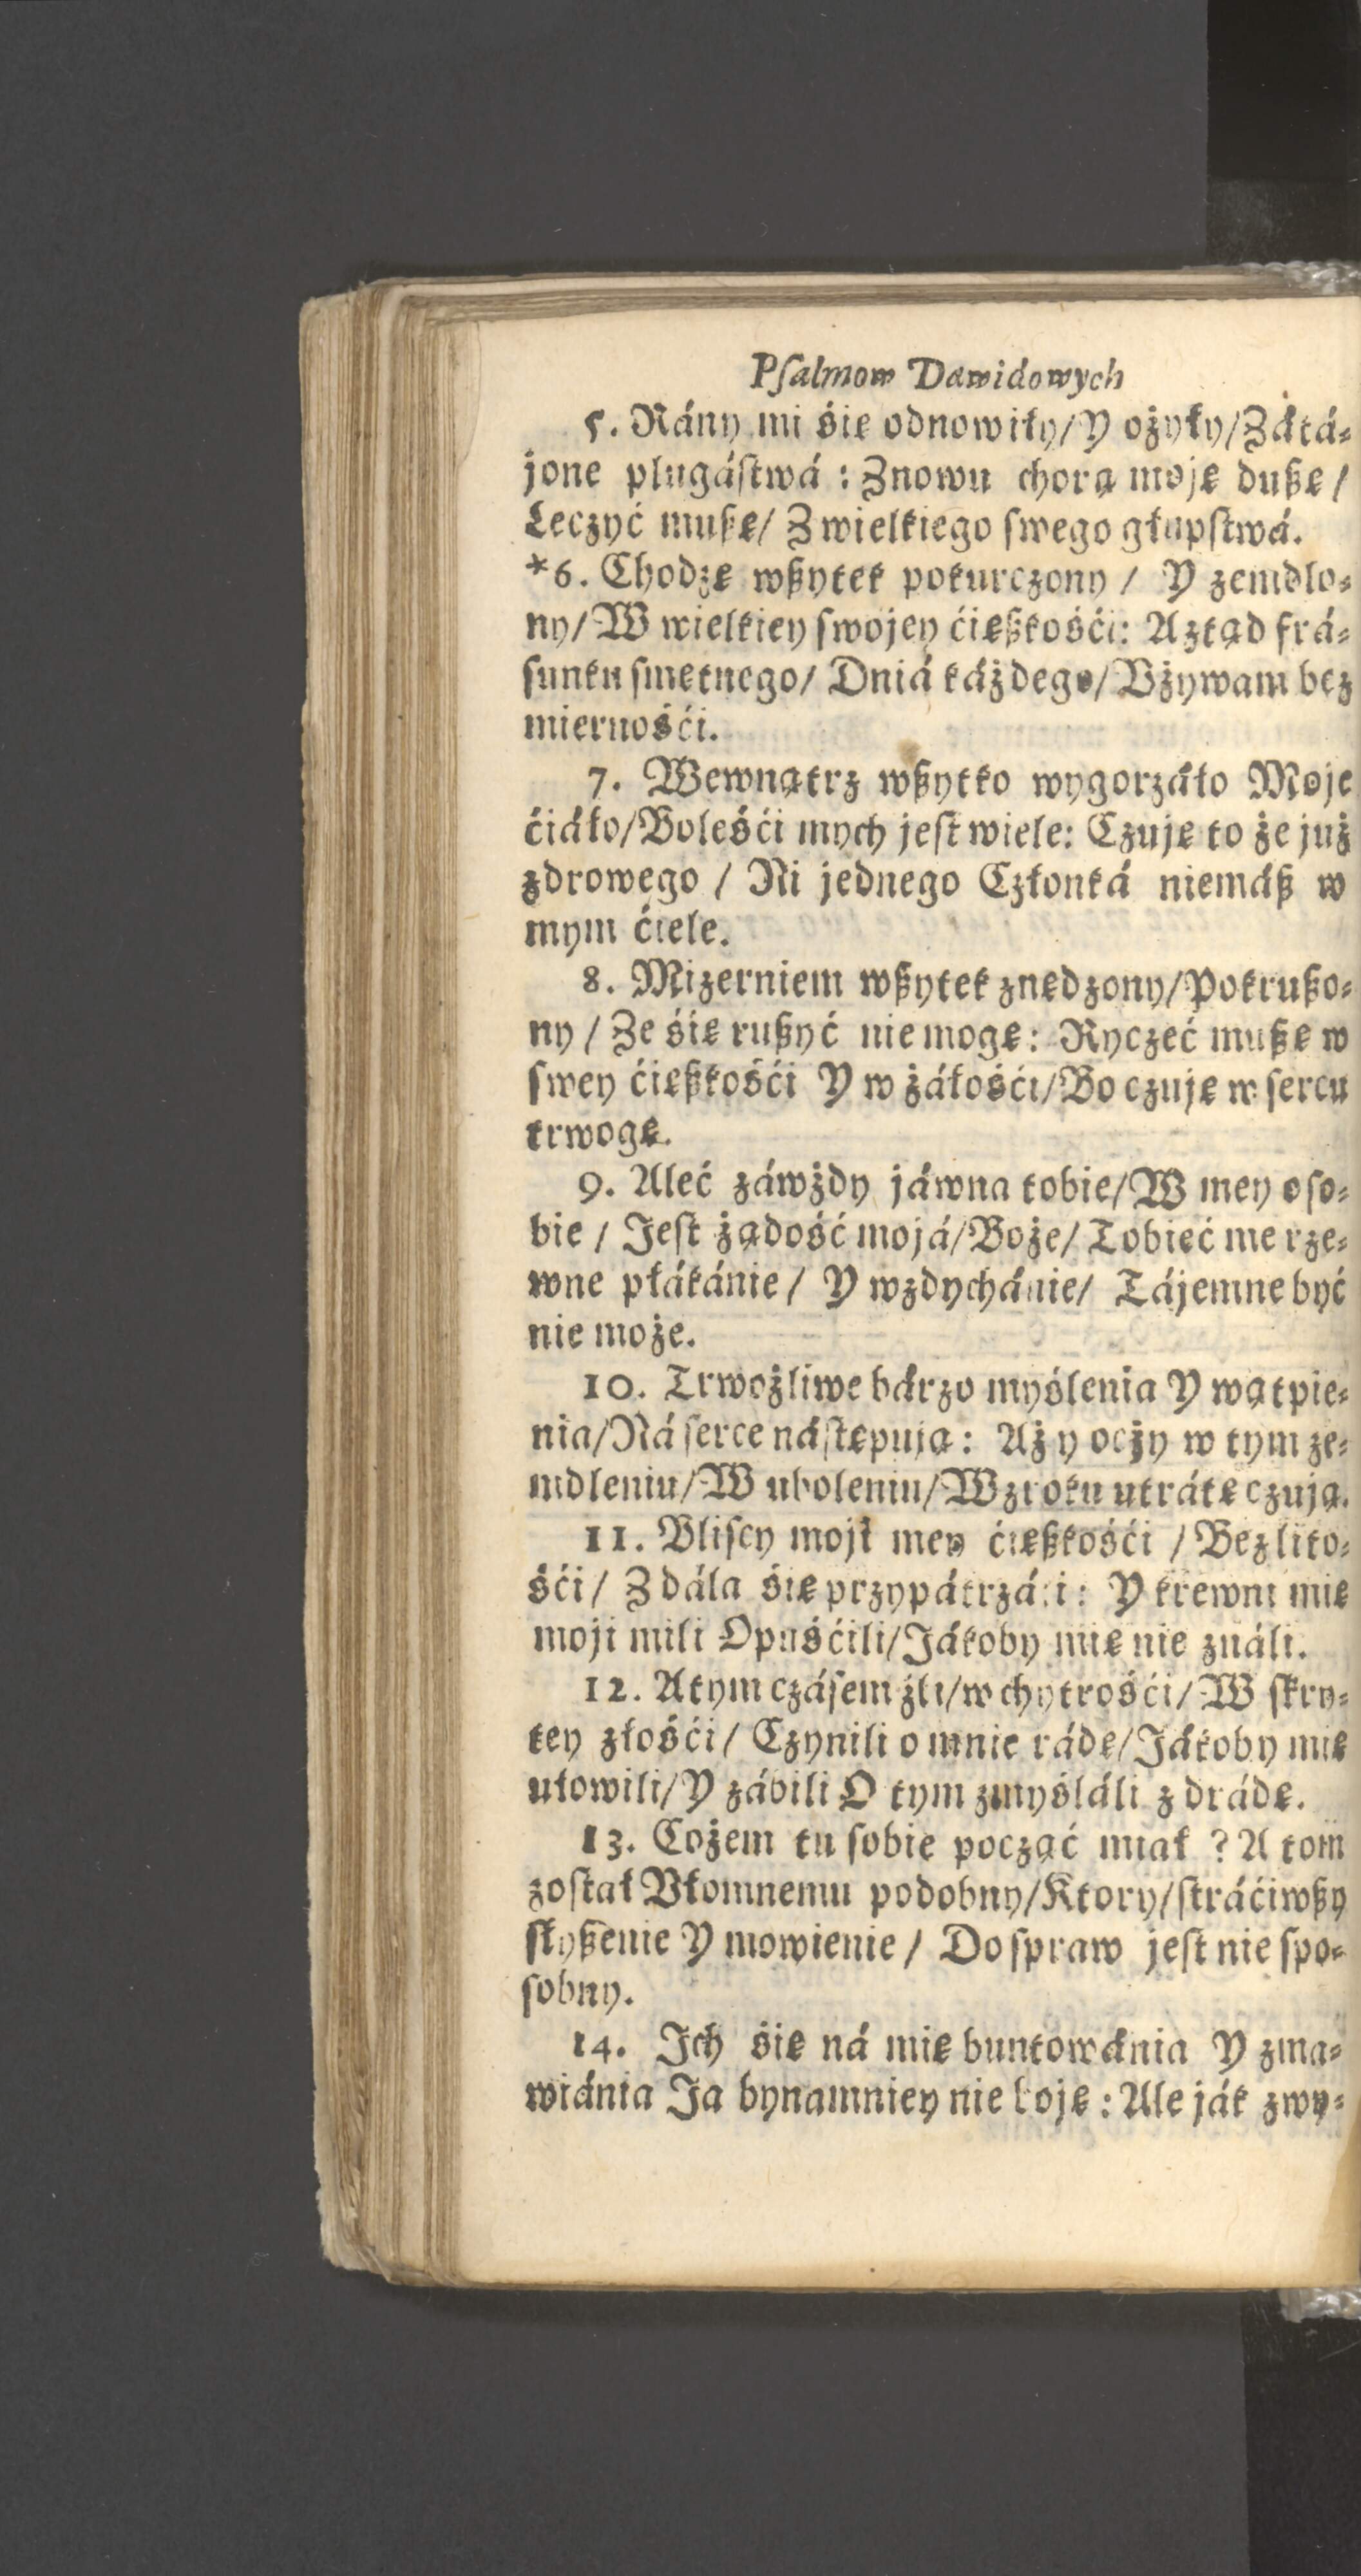 Pſalmow Dawidowych
5. Rány mi śię odnowiły/ Y ożyły/ Zátá⸗
jone plugáſtwá : Znowu chorą moję dußę /
Leczyć mußę/ Z wielkiego ſwego głupſtwá.
*6. Chodzę wßytek pokurczony / Y zemdlo⸗
ny/ W wielkiey ſwojey ćięßkośći: A ztąd frá⸗
ſunku ſmętnego/ Dniá káżdego/ Vżywam bez
miernośći.
7. Wewnątrz wßytko wygorzáło Moje
ćiáło/ Boleśći mych jeſt wiele: Czuję to że już
zdrowego / Ni jednego Członká niemáß w
mym ćiele.
8. Mizerniem wßytek znędzony/ Pokrußo⸗
ny / Ze śię rußyć nie mogę: Ryczeć mußę w
ſwey ćięßkośći Y w żáłośći/ Bo czuję w ſercu
trwogę.
9. Aleć záwżdy jáwna tobie/ W mey oſo⸗
bie / Jeſt żądość mojá/ Boże/ Tobieć me rze⸗
wne płákánie / Y wzdychánie/ Tájemne być
nie może.
10. Trwożliwe bárzo myślenia Y wątpie⸗
nia/ Ná ſerce náſtępują : Aż y oczy w tym ze⸗
mdleniu/ W uboleniu/ Wzroku utrátę czują.
11. Bliſcy moji mey ćięßkośći / Bez lito⸗
śći/ Z dála śię przypátrzáli: Y krewni mię
moji mili Opuśćili/ Jákoby mię nie ználi.
12. A tym czáſem źli/ w chytrośći/ W ſkry⸗
tey złośći/ Czynili o mnie rádę/ Jákoby mię
ułowili/ Y zábili O tym zmyśláli zdrádę.
13. Cożem tu ſobie począć miał ? A tom
zoſtał Vłomnemu podobny/ Ktory/ ſtráćiwßy
ſłyßenie Y mowienie / Do ſpraw jeſt nie ſpo⸗
ſobny.
14. Ich śię ná mię buntowánia Y zma⸗
wiánia Ja bynamniey nie boję : Ale ják zwy⸗